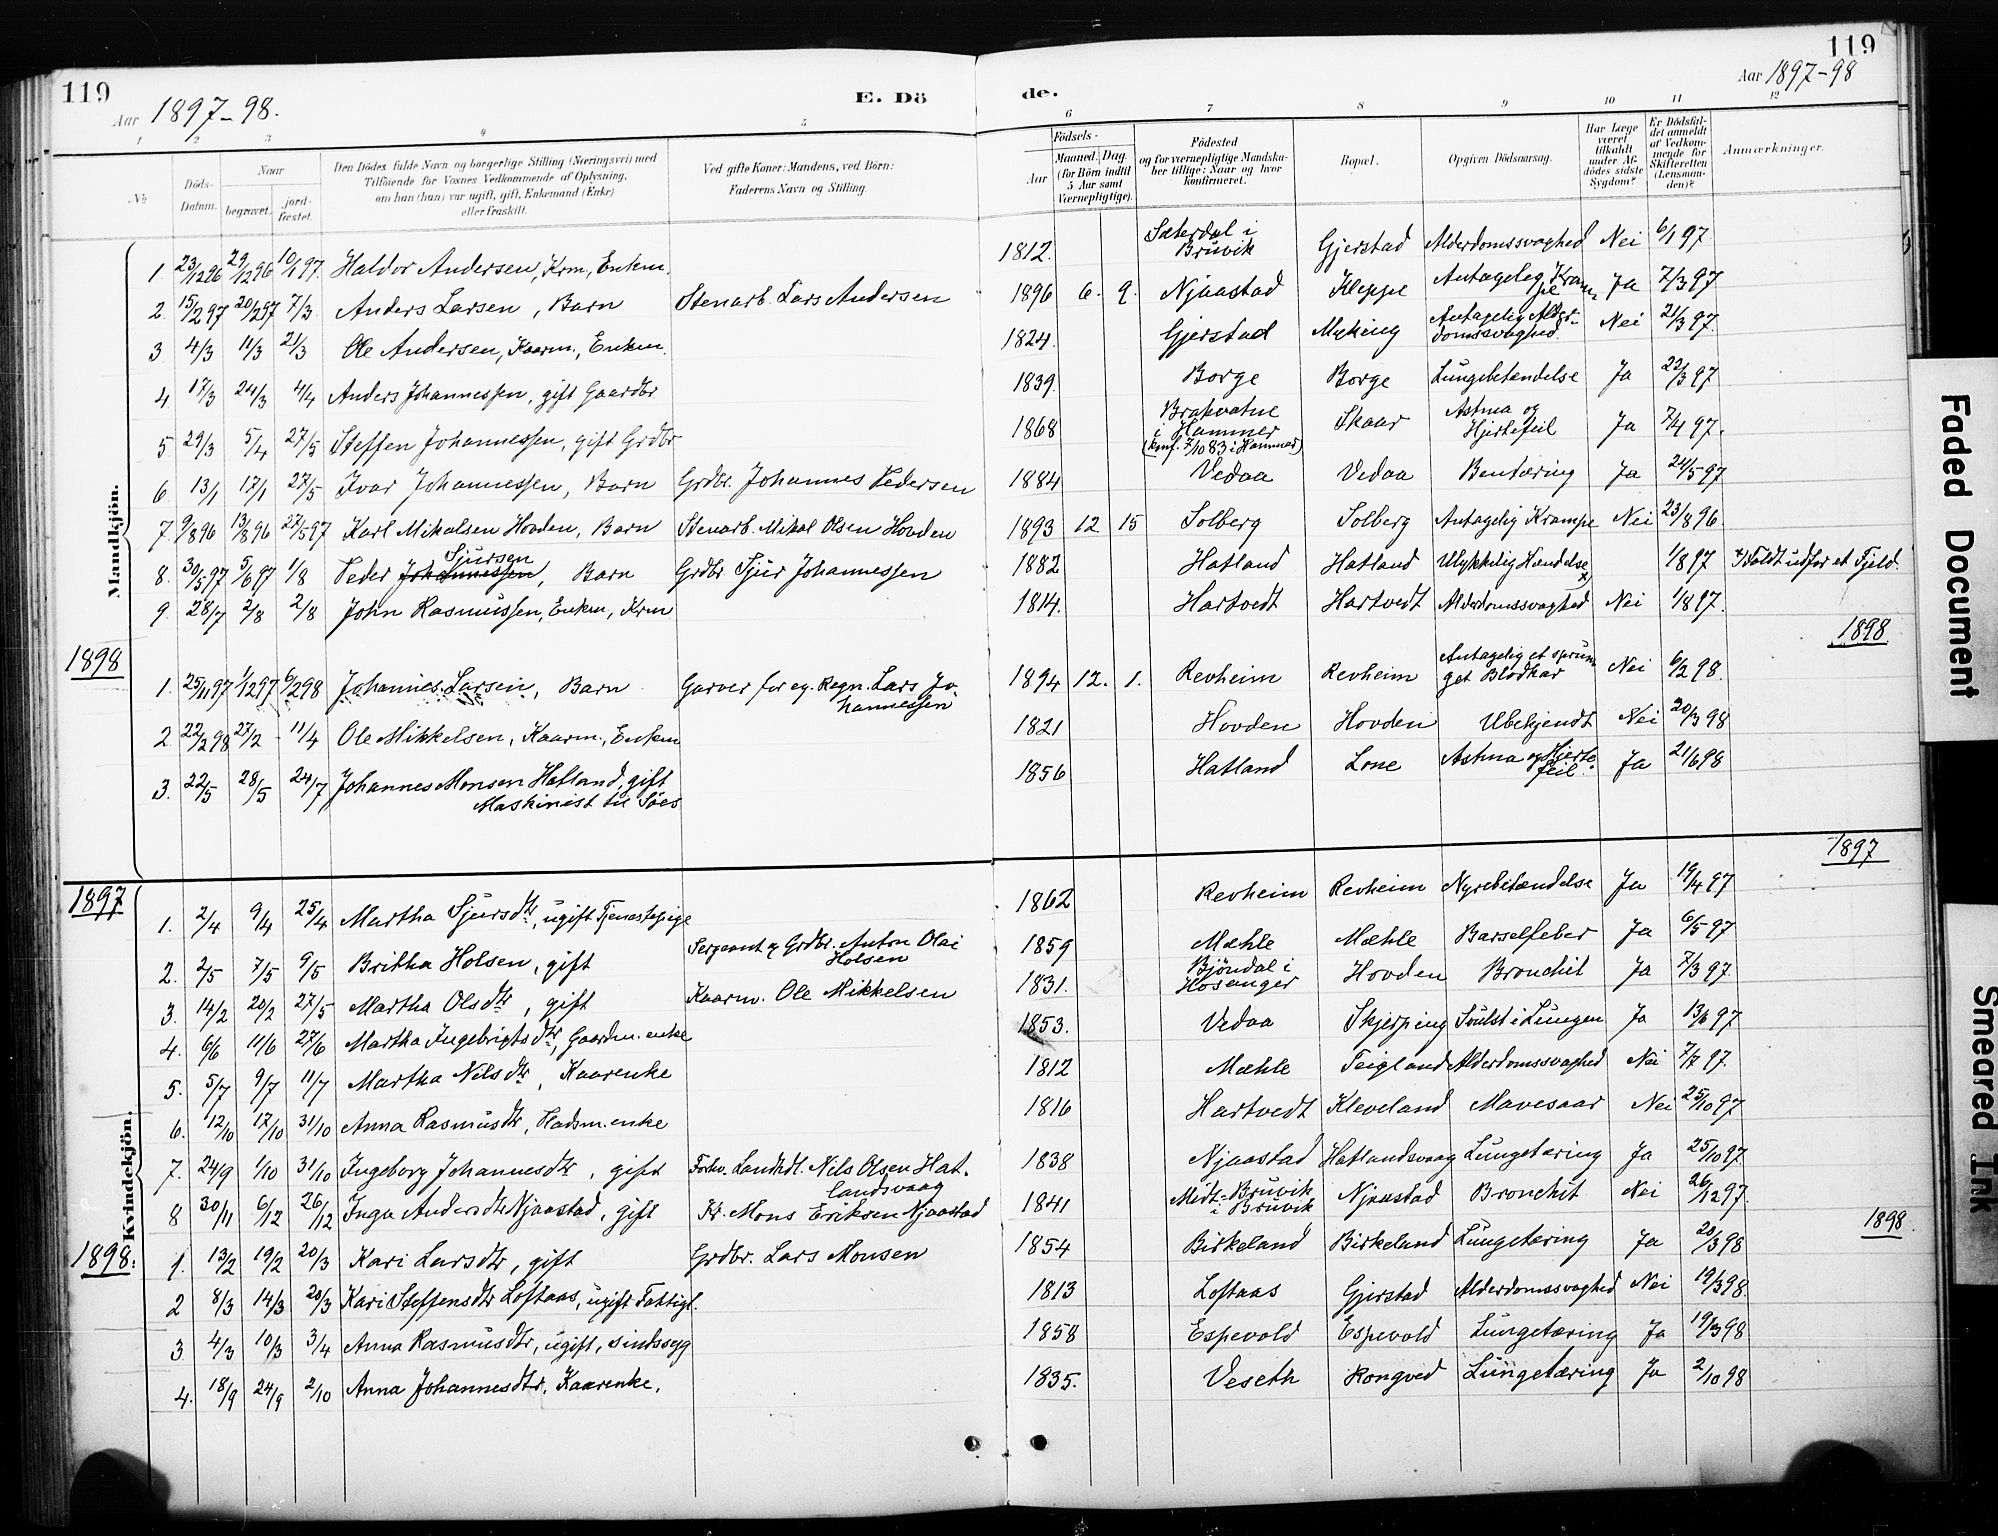 119
Aar 1897-98.
E. Dö
de.
119
Aar 1897-98
1 2 3 4 5 6 7 8 9 10 11 12
No
Döds-Datum.
Naar
begravet.
jord-fæstet.
Den Dödes fulde Navn og borgerlige Stilling (Næringsvei) med
Tilföiende for Voxnes Vedkommende af Oplysning,
om han (hun) var ugift, gift, Enkemand (Enke)
eller fraskilt.
Ved gifte Koner: Mandens, ved Börn:
Faderens Navn og Stilling.
Födsels-
Aar
Maaned. Dag
(for Börn indtil
5 Aar samt
Værnepligtige).
Födested
og for værnepligtige Mandska-
ber tillige: Naar og hvor
konfirmeret.
Bopæl.
Opgiven Dödsaarsag.
Har Læge
været
tilkaldt
under Af-
dödes sidste
Sygdom?
Er Dödsfal-
det anmeldt
af Vedkom-
mende for
Skifteretten
(Lensman-
den)?
Anmærkninger.
Mandkjön.
1. 23/12 96 29/12 96 10/1 97. Haldor Andersen, Krm, Enkm. 1812. Sæterdal i Bruvik Gjerstad Alderdomssvaghed Nei 6/1 97
2. 15/2 97 20/2 97 7/3 Anders Larsen, Barn Stenarb. Lars Andersen 1896 6. 9. Njaastad Kleppe Antagelig Krampe Ja 7/3 97
3 4/3 11/3 21/3 Ole Andersen, Kaarm., Enkm. 1824. Gjerstad Myking Antagelig Alder-domssvaghed. Nei 21/3 97.
4. 17/3 24/3 4/4 Anders Johannessen, gift Gaardbr 1839. Borge Borge Lungebetændelse Ja 22/3 97
5. 29/3 5/4 27/5 Steffen Johannessen, gift Grdbr 1868 Brakvatne i Hammer (knf. 7/10 83 i Hammer) Skaar Astma og Hjertefeil Ja 7/4 97.
6. 13/1 17/1 27/5 Ivar Johannessen, Barn Grdbr. Johannes Pedersen 1884 Vedaa Vedaa Bentæring Ja 24/5 97
7. 9/8 96 13/8 96 27/5 97 Karl Mikalsen Hovden, Barn Stenarb. Mikal Olsen Hovden 1893 12. 15 Solberg Solberg Antagelig Krampe Nei 23/8 96.
8. 30/5 97 5/6 97 1/8 Peder Johannessen Sjursen, Barn Grdbr Sjur Johannessen 1882 Hatland Hatland Ulykkelig Hændelse x 1/8 97 x) Faldt udfor et Fjeld.
9. 28/7 2/8 2/8 John Rasmussen, Enkm, Krm 1814. Hartvedt Hartvedt Alderdomssvaghed Nei 1/8 97.
1898
1898
1. 25/11 97 1/12 97 6/2 98 Johannes Larsen, Barn Garver for eg. Regn. Lars Jo-hannessen 1894 12. 1. Revheim Revheim Antagelig et sprun-get Blodkar Nei 6/2 98.
2 22/2 98 27/2 11/4 Ole Mikkelsen, Kaarm., Enkm 1821 Hovden Hovden Ubekjendt Nei 20/3 98
3. 22/5 28/5 24/7 Johannes Monsen Hatland, gift Maskinist til Söes 1856 Hatland Lone Astma og Hjerte-feil. Ja 21/6 98
1897
1897
Kvindekjön.
1. 2/4 9/4 25/4 Martha Sjursdtr, ugift Tjenestepige 1862 Revheim Revheim Nyrebetændelse Ja 19/4 97
2. 2/5 7/5 9/5 Britha Holsen, gift Sergeant & Grdbr. Anton Olai Holsen 1859 Mæhle Mæhle Barselfeber Ja 6/5 97
3. 14/2 20/2 27/5 Martha Olsdtr, gift Kaarm. Ole Mikkelsen 1831. Bjöndal i Hosanger Hovden Bronchit Ja 7/3 97.
4. 6/6 11/6 27/6 Martha Ingebrigtsdtr, Gaardm. enke 1853. Vedaa Skjerping Svulst i Lungen Ja 13/6 97
5. 5/7 9/7 11/7 Martha Nilsdtr, Kaarenke 1812 Mæhle Teigland Alderdomssvaghed Nei 7/7 97.
6. 12/10 17/10 31/10 Anna Rasmusdtr, Husm. enke 1816 Hartvedt Kleveland Mavesaar Nei 25/10 97
7. 24/9 1/10 31/10 Ingeborg Johannesdtr, gift Forhv. Landhdl. Nils Olsen Hat-landsvaag 1838 Njaastad Hatlandsvaag Lungetæring Ja 25/10 97
8 30/11 6/12 26/12 Inga Andersdtr Njaastad, gift Kr. Mons Eriksen Njaastad 1841 Midt-Bruvik i Bruvik Njaastad Bronchit Nei 26/12 97.
1898.
1898.
1. 13/2 19/2 20/3 Kari Larsdtr, gift Grdbr. Lars Monsen 1854 Birkeland Birkeland Lungetæring Ja 20/3 98
2 8/3 14/3 20/3 Kari Steffensdtr Loftaas, ugift Fattigl. 1813 Loftaas Gjerstad Alderdomssvaghed Nei 19/3 98.
3. 4/3 10/3 3/4 Anna Rasmusdtr, ugift, sindssyg 1858 Espevold Espevold Lungetæring Ja 19/3 98
4. 18/9 24/9 2/10 Anna Johannesdtr, Kaarenke. 1835. Veseth Rongved Lungetæring Ja 2/10 98
Faded Document
Smeared Ink